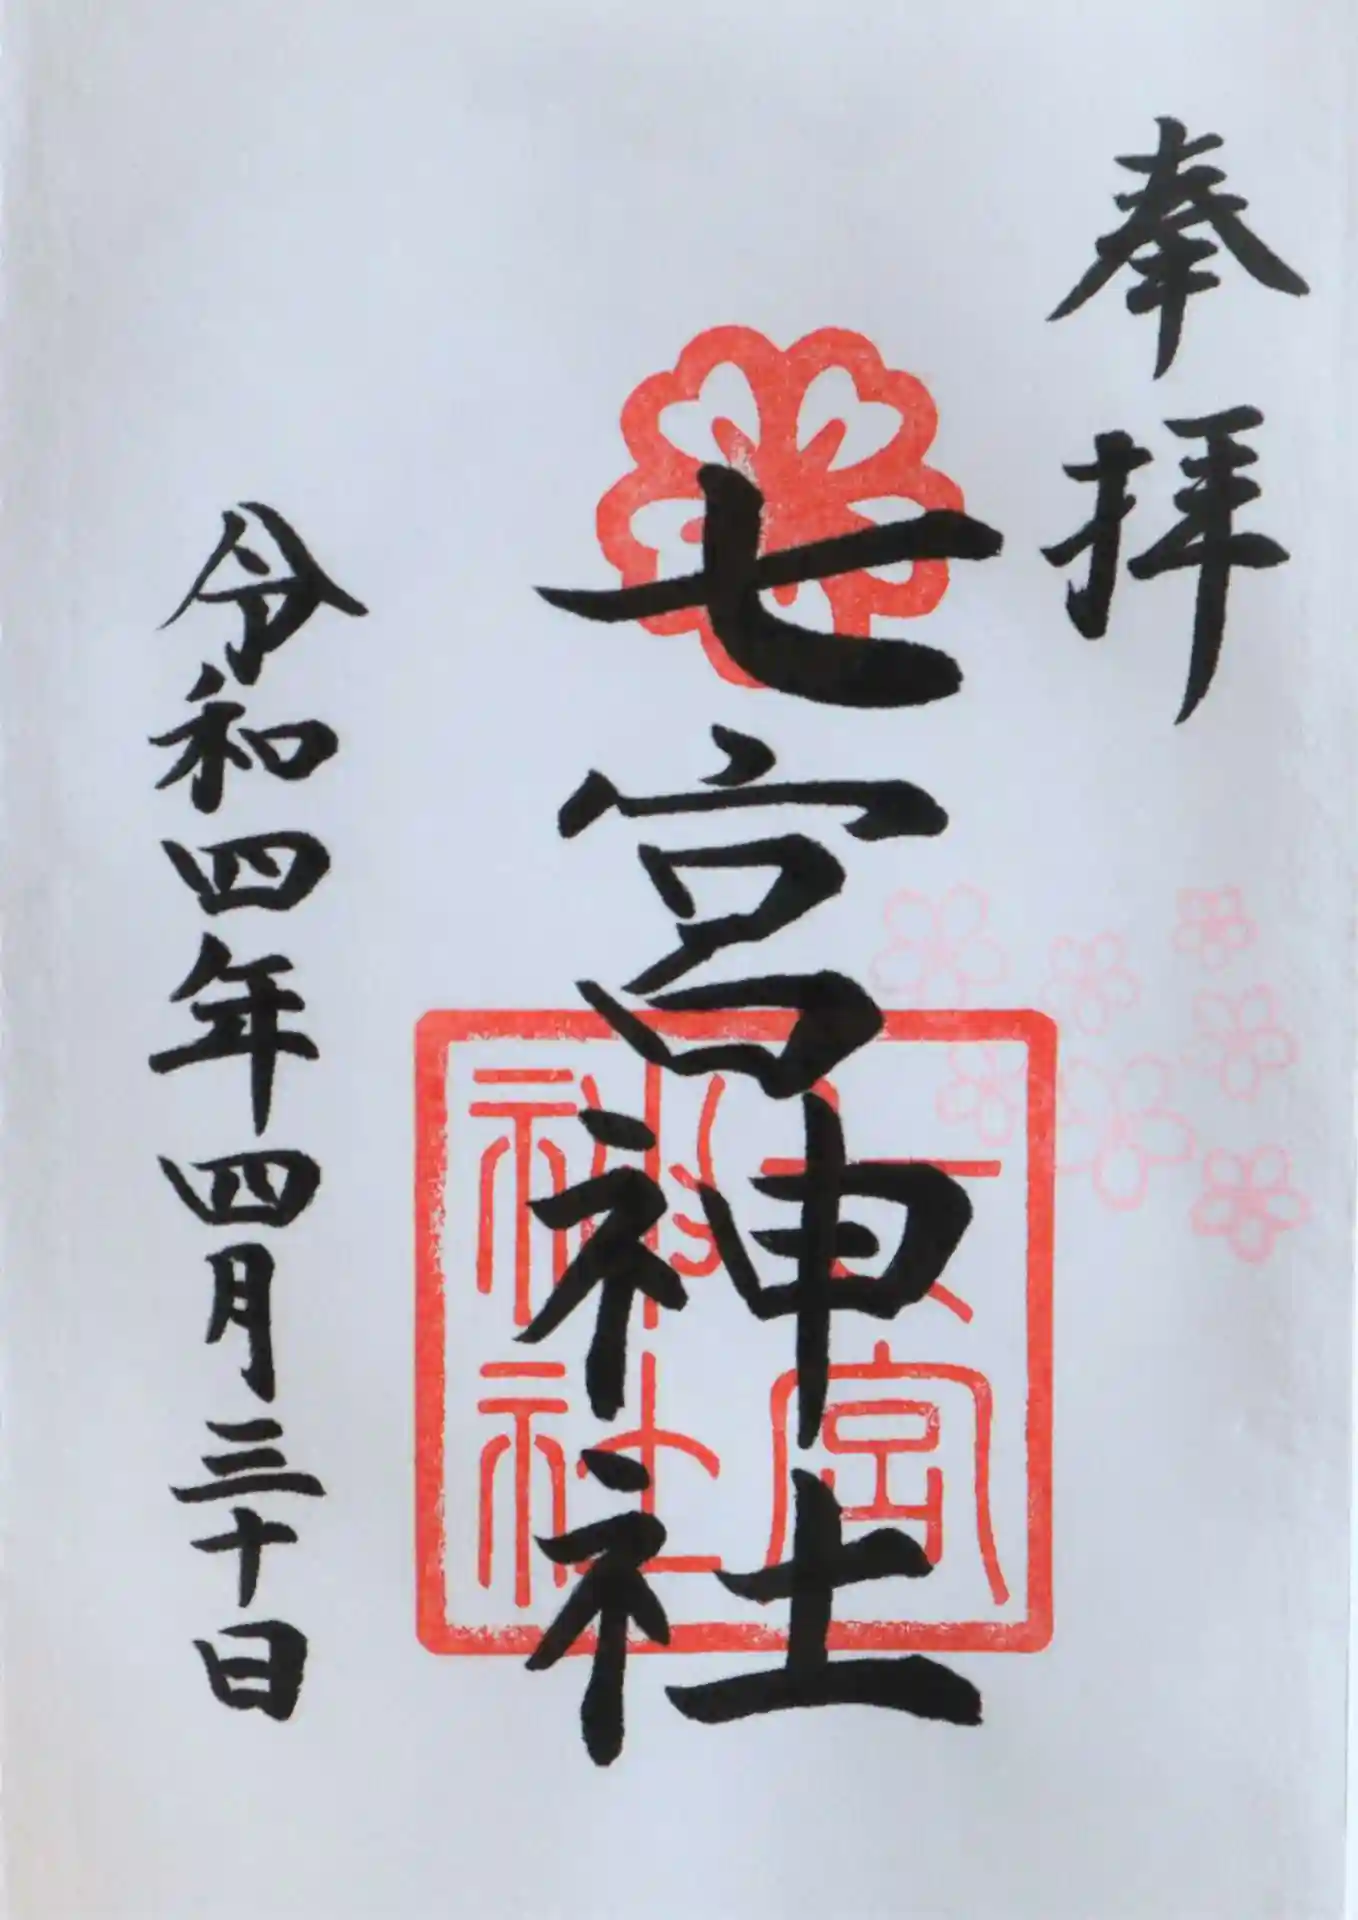 奉拝
七宮神社
七宮
神社
令和四年四月三十日